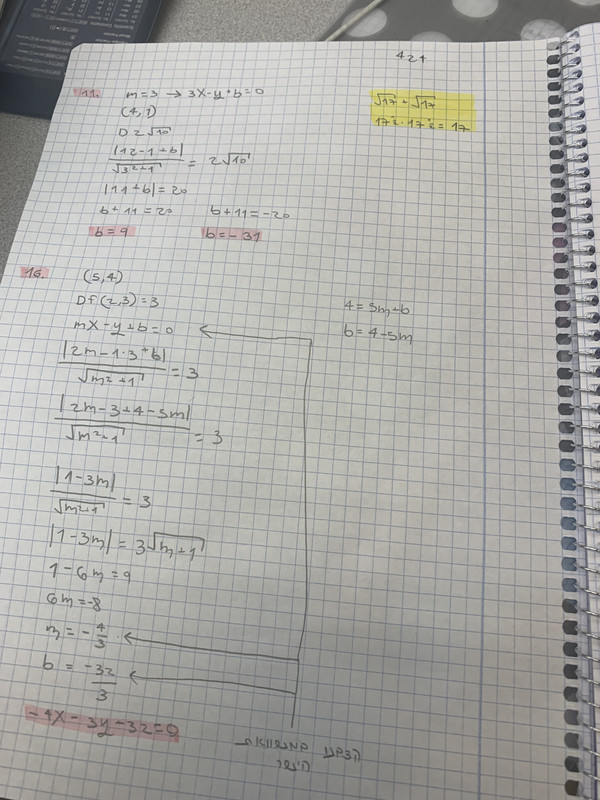 424
11. m=3 → 3x-y+b=0
(4,1)
D 2√10
|12-1+b| / √3²+1 = 2√10
|11+b|=20
b+11=20 b+11=-20
b=9 b=-31
√17 · √17
17^½ · 17^½ = 17
16. (5,4)
Df(2,3)=3
mx-y+b=0
|2m-1·3+b| / √m²+1 = 3
|2m-3+4-5m| / √m²+1 = 3
|1-3m| / √m²+1 = 3
|1-3m| = 3√m+1
1-6m=9
6m=-8
m = -4/3
b = -32/3
-4x-3y-32=0
4=5m+b
b=4-5m